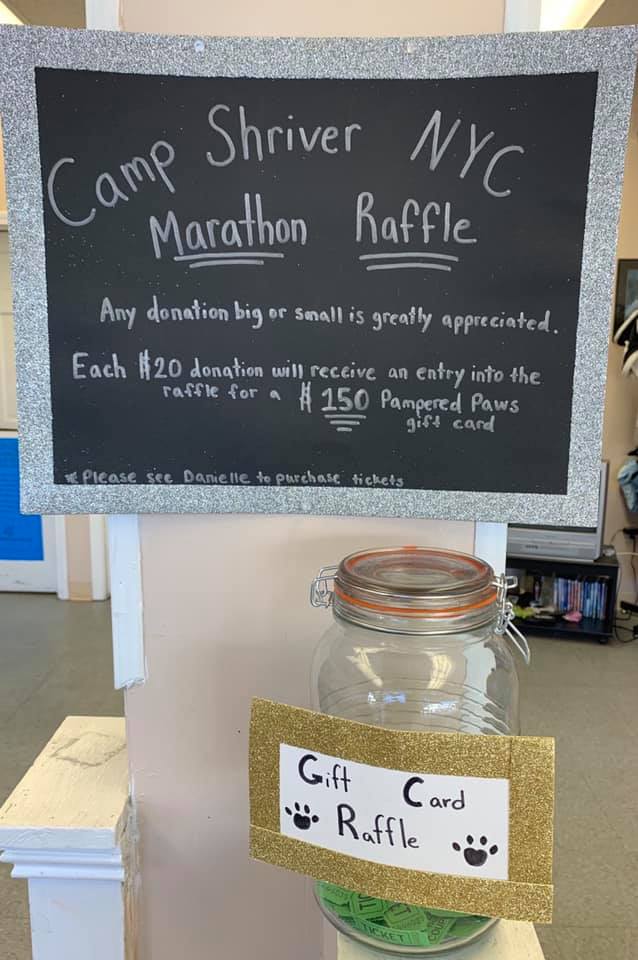 Camp Shriver NYC
Marathon Raffle
Any donation big or small is greatly appreciated.
Each $20 donation will receive an entry into the
raffle for a $150 Pampered Paws
gift card
*Please see Danielle to purchase tickets
Gift Card
Raffle
TICKET